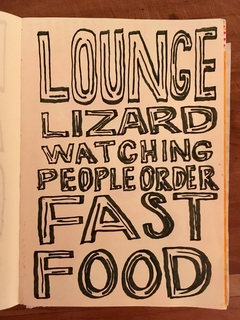 LOUNGE
LIZARD
WATCHING
PEOPLE ORDER
FAST
FOOD